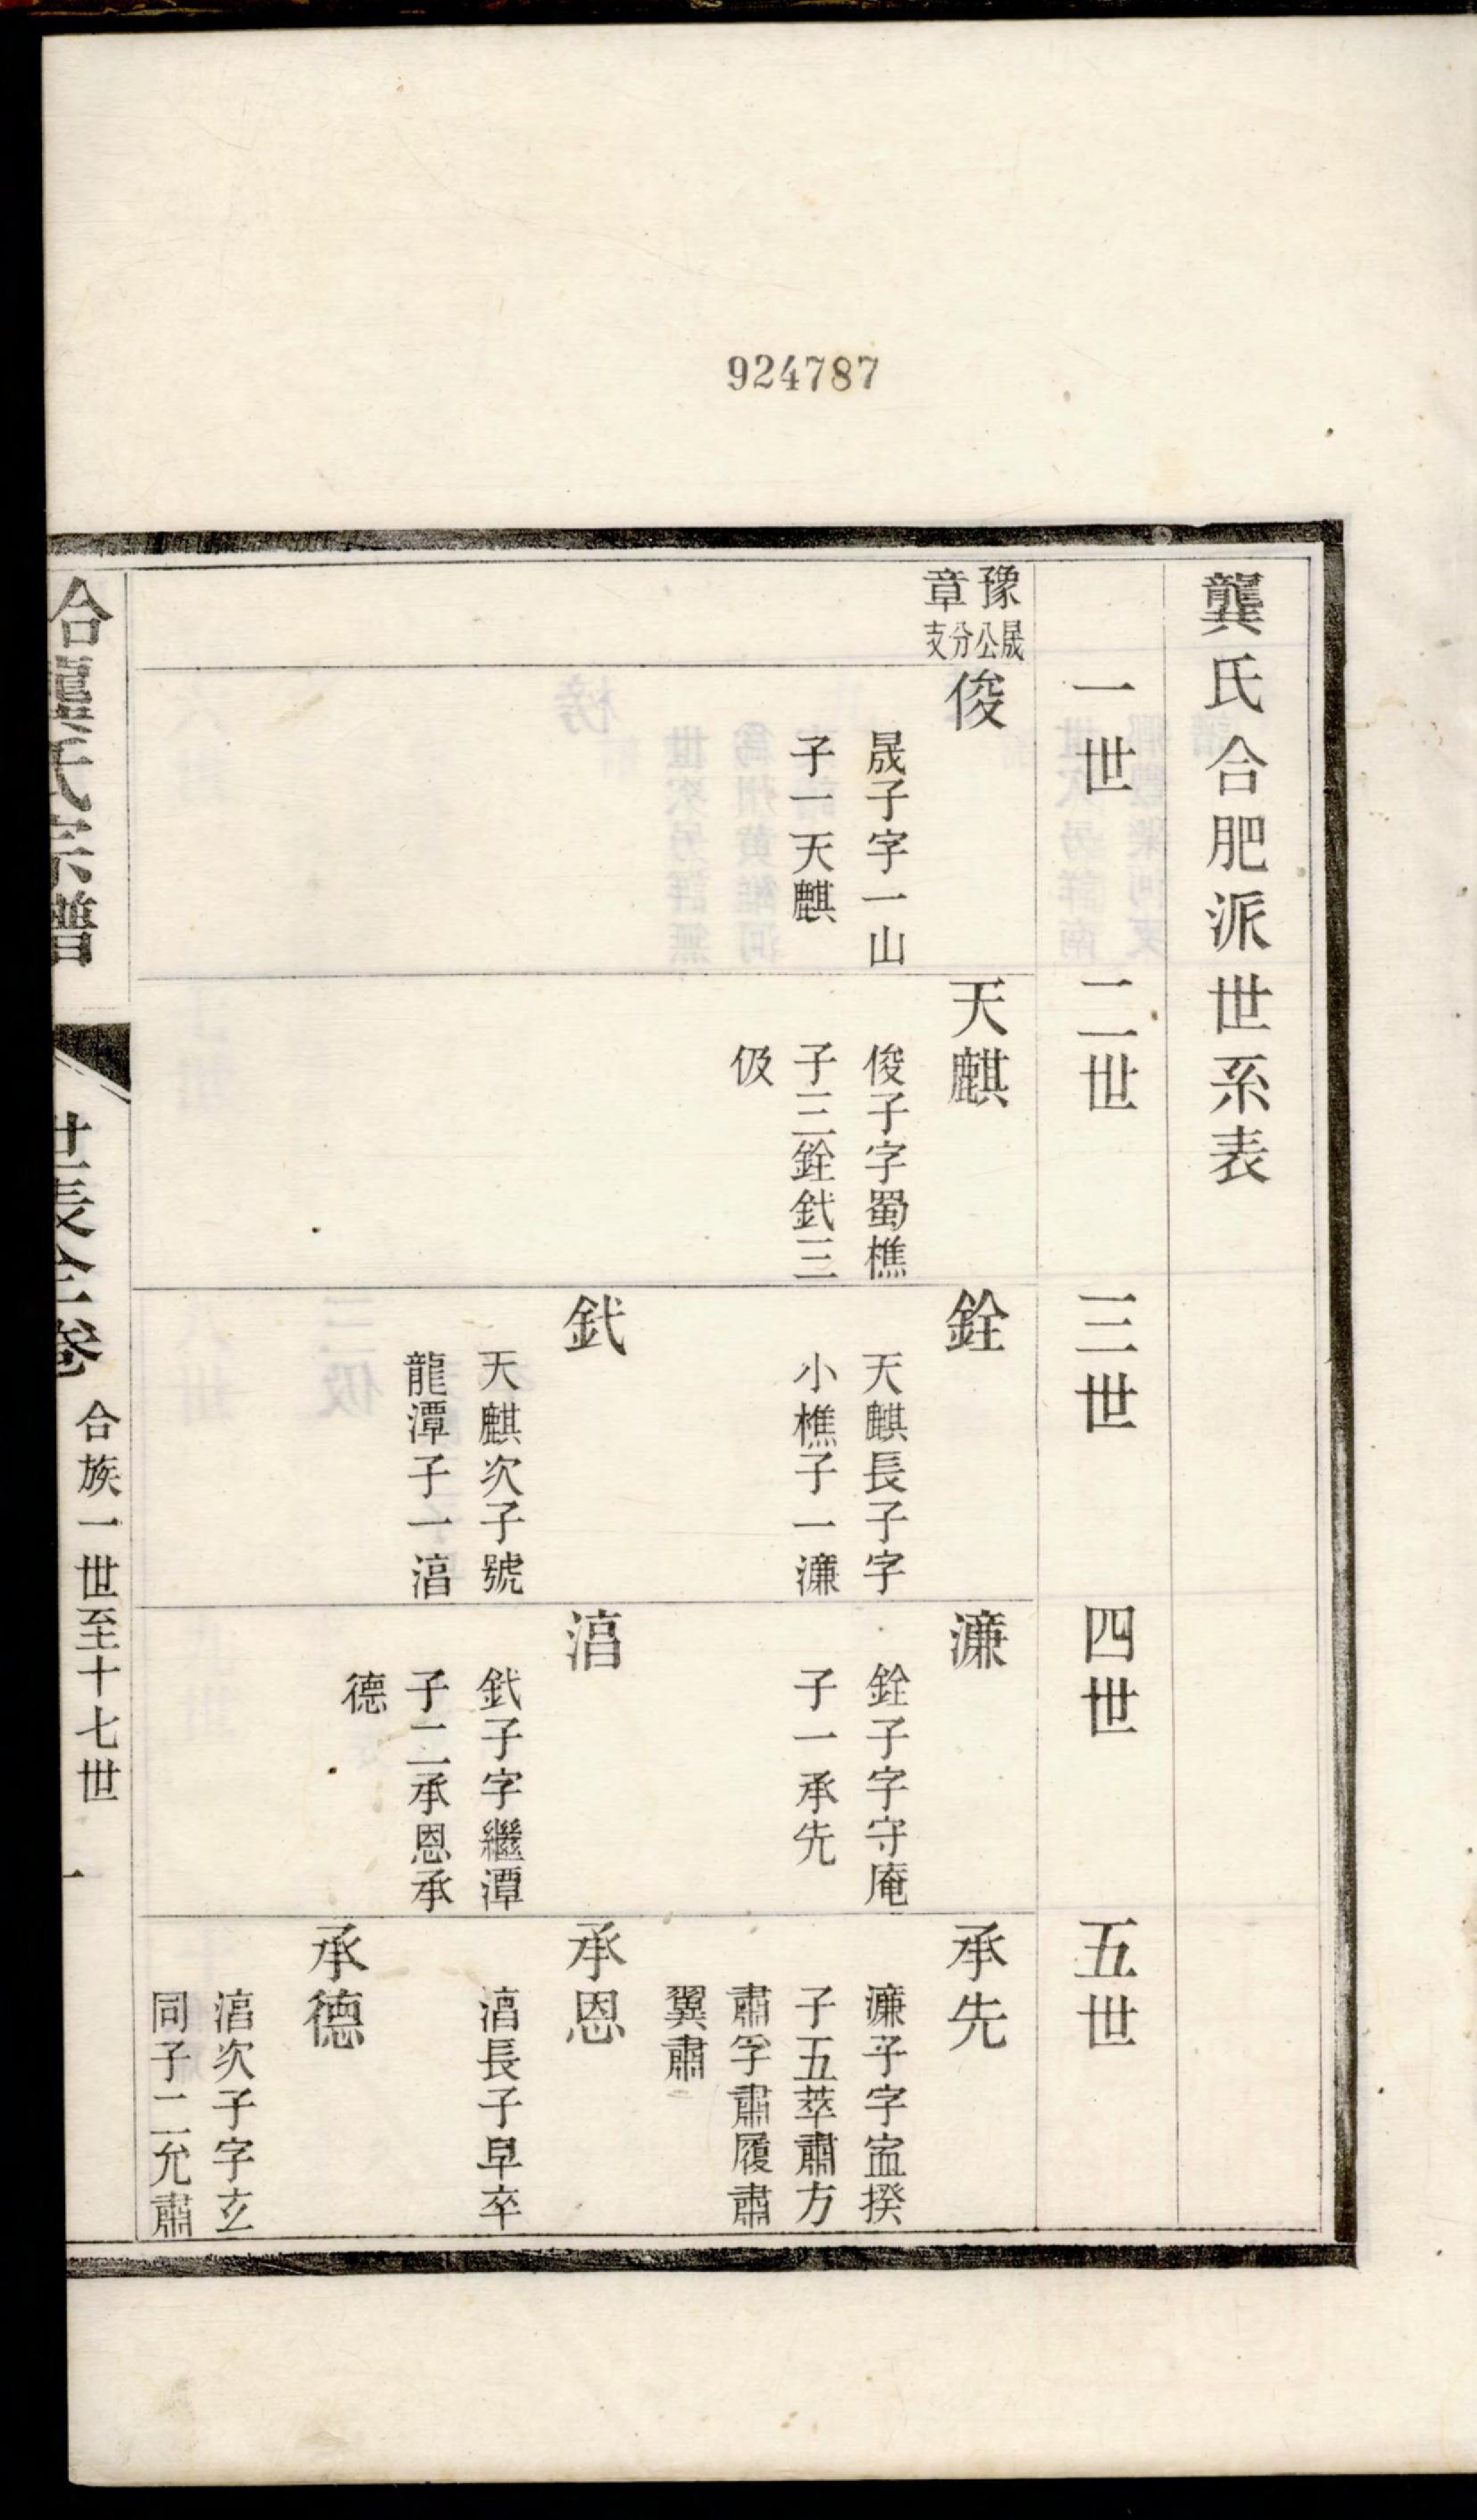 924787
龔氏合肥派世系表
一世
二世
三世
四世
五世
豫章
晟公分支
俊
晟子字一山
子一天麒
天麒
俊子字蜀樵
子三銓釴三
伋
銓
天麒長子字
小樵子一濂
釴
天麒次子號
龍潭子一湻
濂
銓子字守庵
子一承先
湻
釴子字繼潭
子二承恩承
德
承先
濂子字宻揆
子五萃肅方
肅孚肅履肅
翼肅
承恩
湻長子早卒
承德
湻次子字玄
同子二允肅
合龔氏宗譜
世表全卷
合族一世至十七世
一